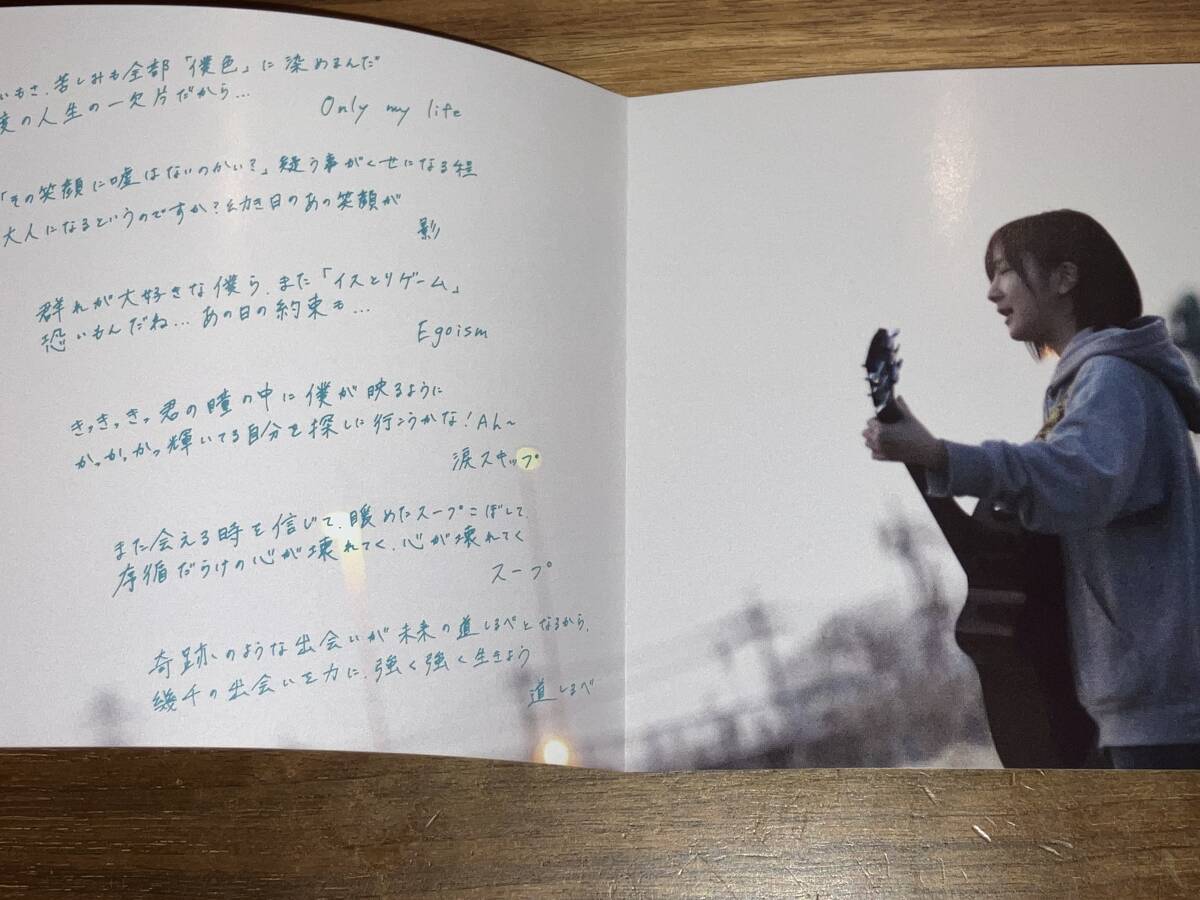 いもさ、苦しみも全部「僕色」に染めるんだ
度の人生の一欠片だから…
Only my life
「その笑顔に嘘はないのかい？」疑う事がくせになる程
大人になるというのですか？幼き日のあの笑顔が
影
群れが大好きな僕ら、また「イスとりゲーム」
恐いもんだね…あの日の約束も…
Egoism
きっきっきっ君の瞳の中に僕が映るように
かっかっかっ輝いてる自分を探しに行こうかな！Ah〜
涙スキップ
また会える時を信じて、暖めたスープこぼして、
だらけの心が壊れてく、心が壊れてく
スープ
奇跡のような出会いが未来の道しるべとなるから、
幾千の出会いを力に、強く強く生きよう
道しるべ